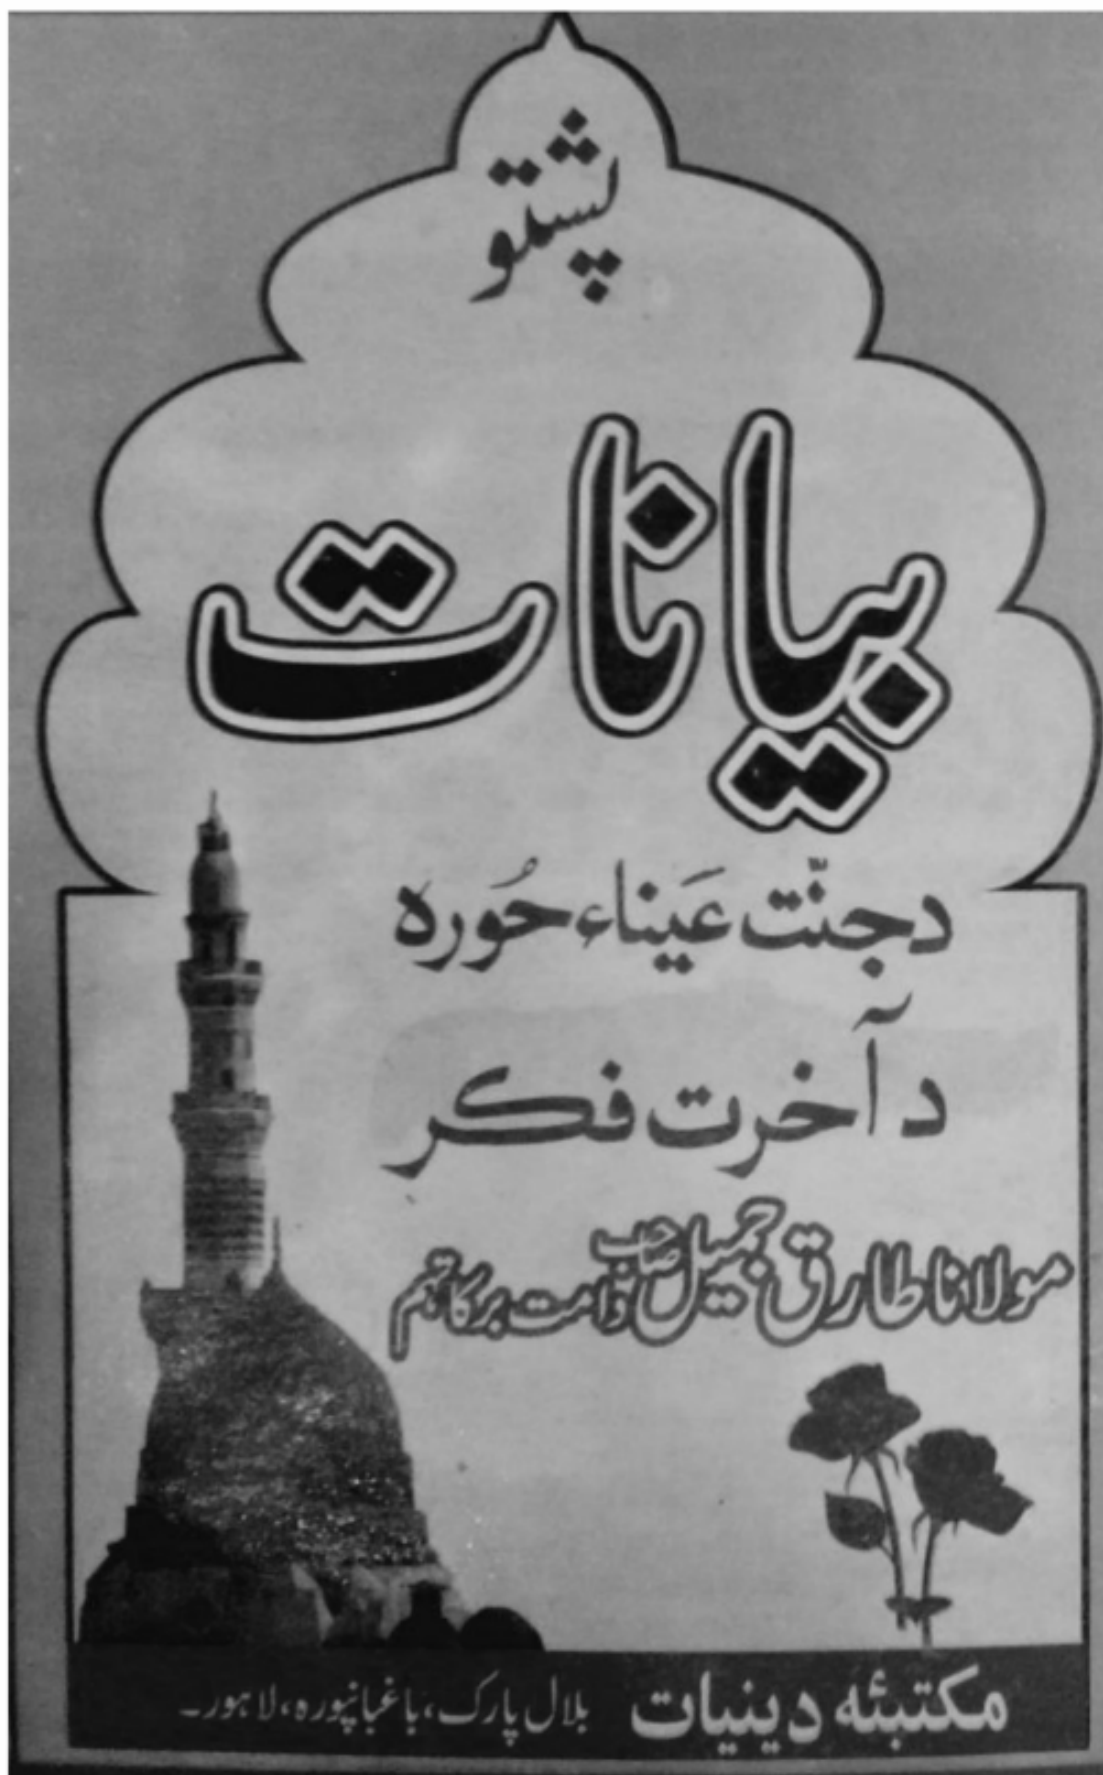 پشتو
بیانات
د جنّت عَیناء حُوره
د آخرت فکر
مولانا طارق جمیل صاحب دامت برکاتہم
مکتبئه دینیات بلال پارک، باغبانپورہ، لاہور۔